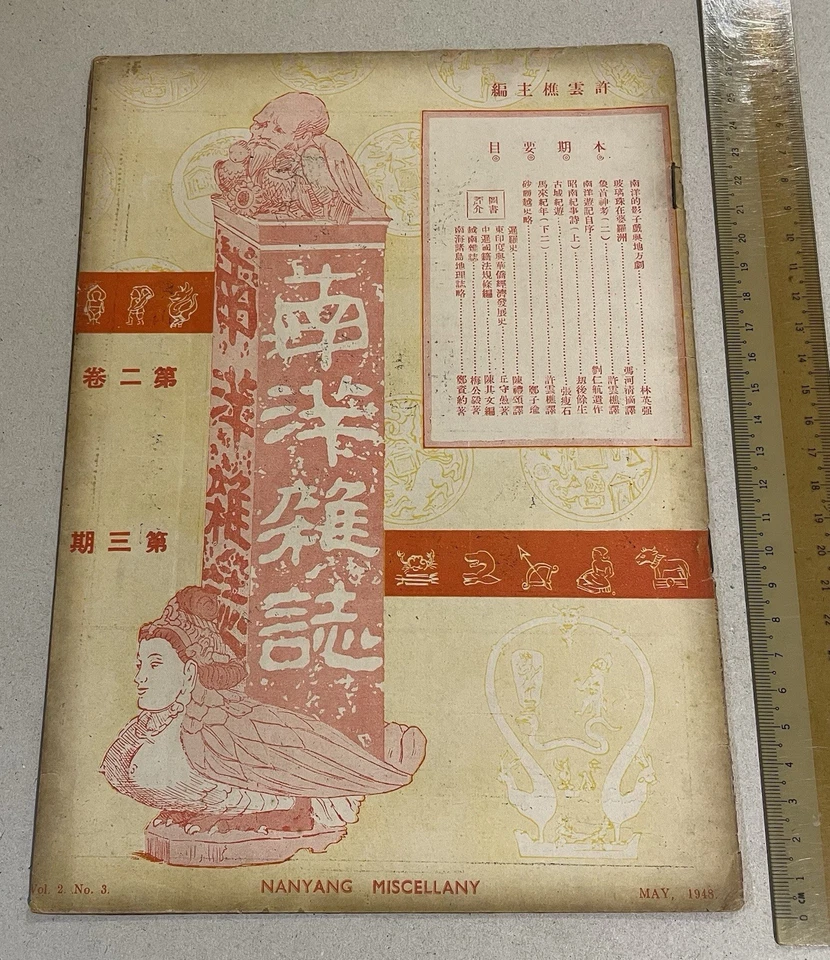 許雲樵主編
本期要目
南洋的影子戲與地方劇 林英强
玻璃珠在婆羅洲 馮河清摘譯
象首神考(二) 許雲樵譯
南洋遊記自序 劉仁航遺作
昭南紀事詩(上) 劫後餘生
古城紀遊 張瘦石
馬來紀年(下二) 許雲樵譯
砂朥越史略 鄭子瑜
圖書評介
暹羅史 陳禮頌譯
東印度與華僑經濟發展史 丘守愚著
中暹國籍法規 編 陳其文編
越南 誌 梅公毅著
南海諸島地理誌略 鄭資約著
南洋雜誌
南洋雜誌
第二卷
第三期
Vol. 2. No. 3.
NANYANG MISCELLANY
MAY, 1948.